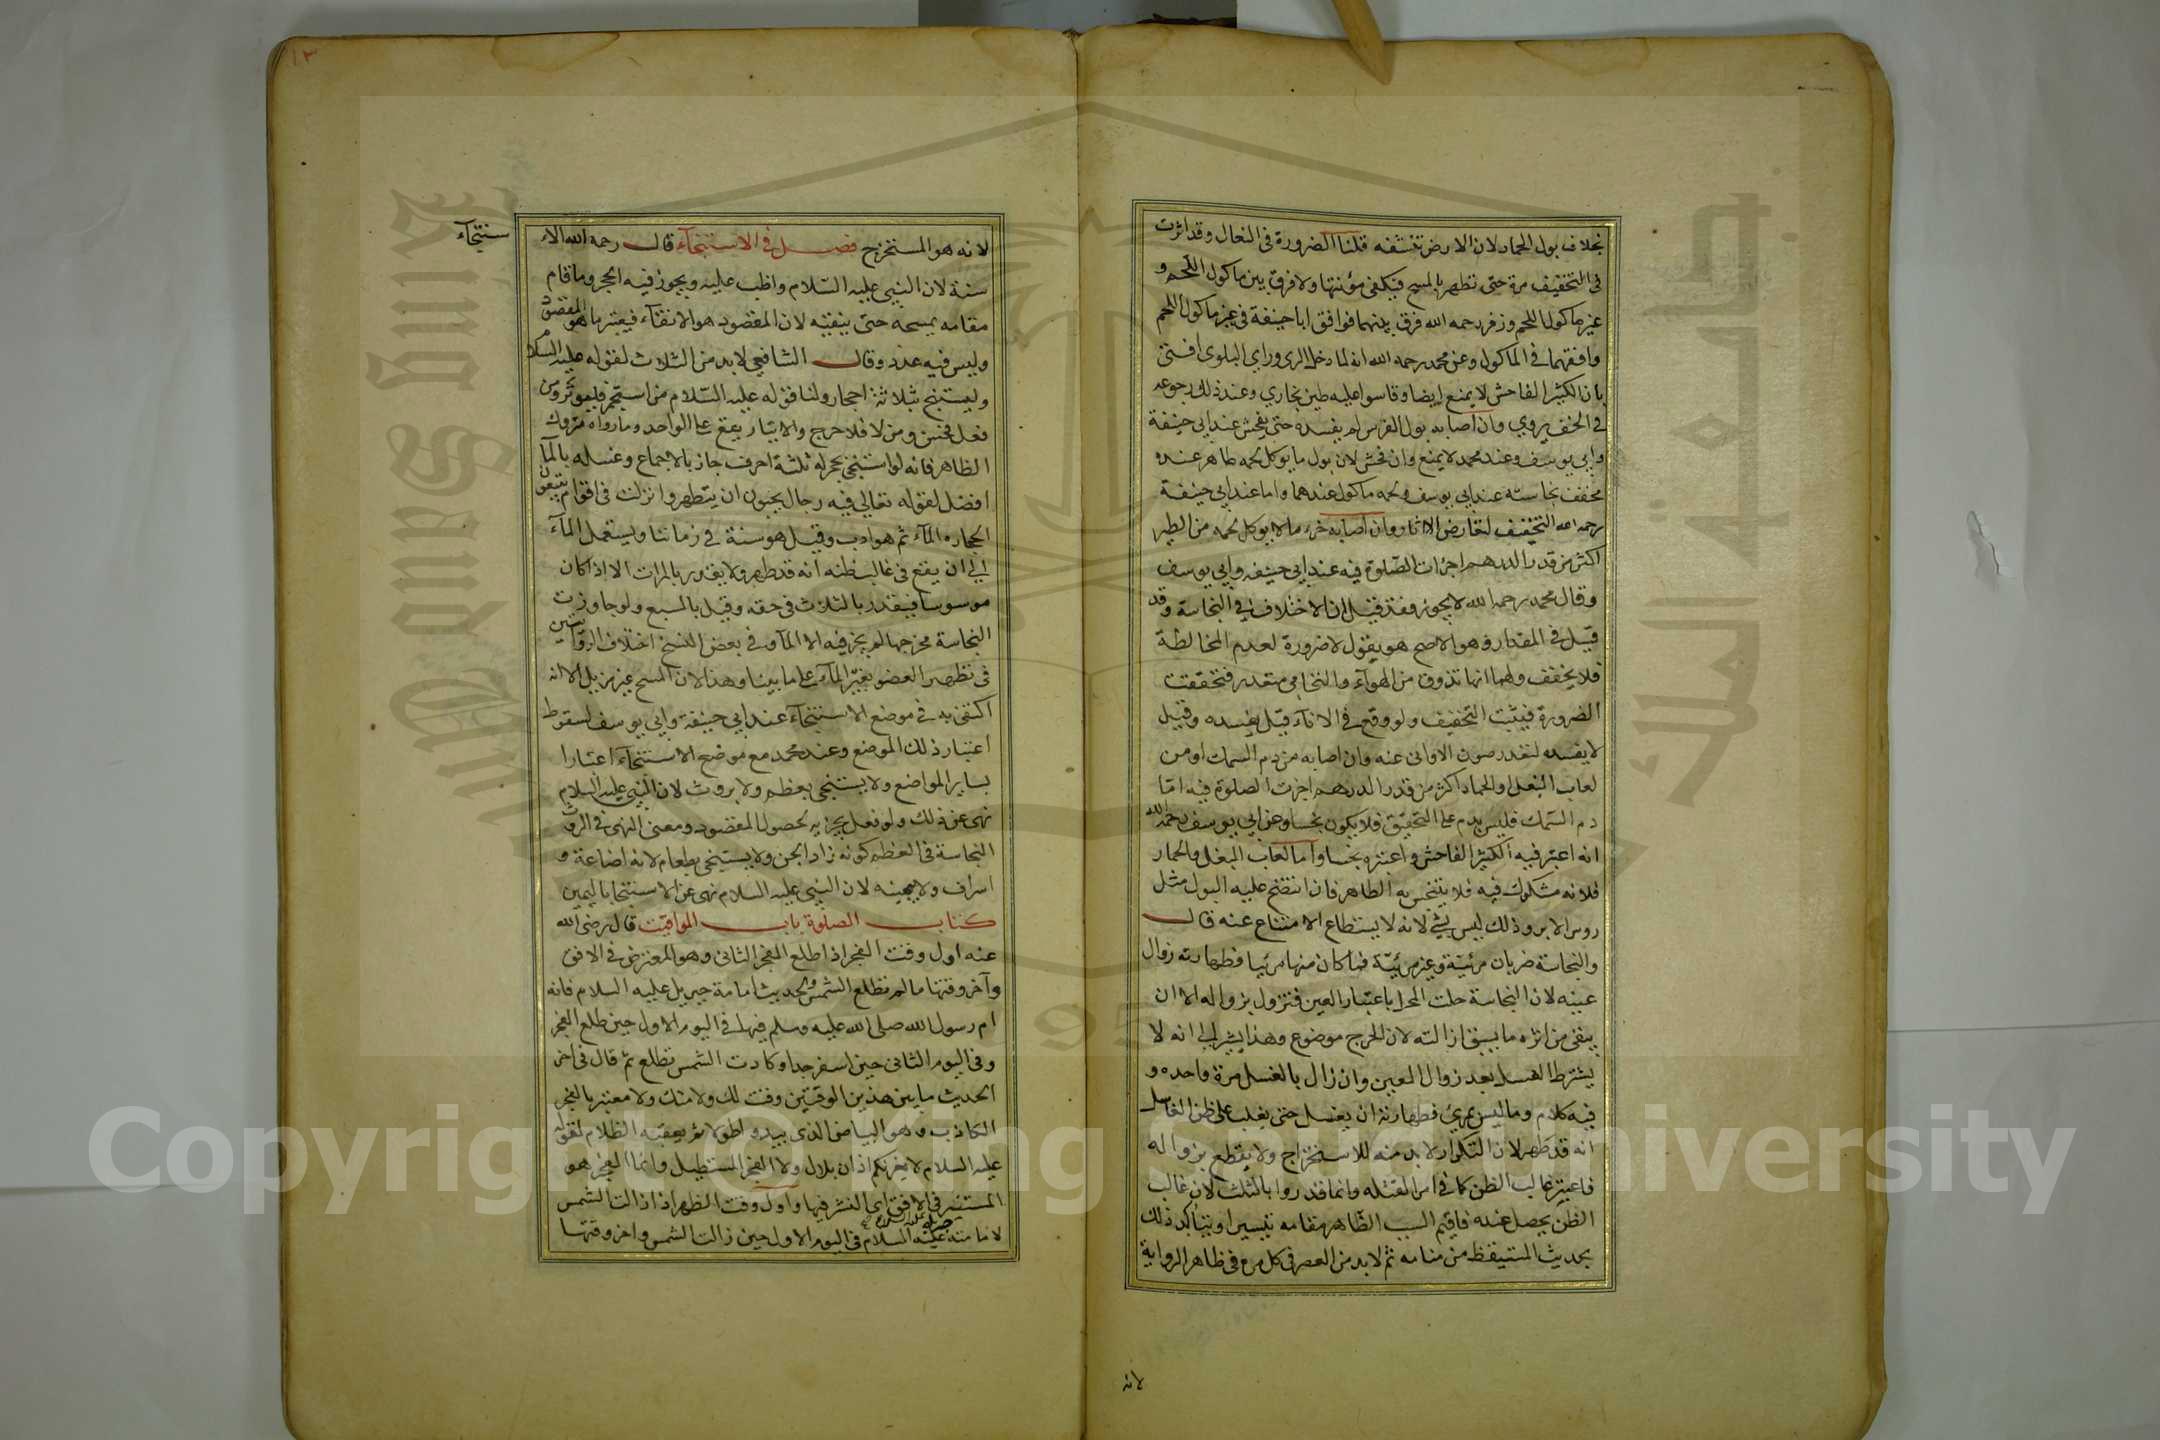 بخلاف بول الحمار لان الارض تنشفه قلنا الضرورة فى النعال وقد اثرت
فى التخفيف مرة حتى تطهر بالمسح فيكفى مؤنتها ولا فرق بين ماكول اللحم و
غير ماكول اللحم وزفر رحمه الله فرق بينهما فوافق ابا حنيفة فى غير ماكول اللحم
وافقهما فى الماكول وعن محمد رحمه الله انه لما دخل الرى وراى البلوى افتى
بان الكثير الفاحش لا يمنع ايضا وقاسوا عليه طين بخارى وعند ذلك رجوعه
فى الخف يروي وان اصابه بول الفرس لم يفسده حتى يفحش عند ابى حنيفة
وابى يوسف وعند محمد لا يمنع وان فحش لان بول ما يوكل لحمه طاهر عنده
مخفف نجاسته عند ابى يوسف ولحمه ماكول عندهما واما عند ابى حنيفة
رحمه الله التخفيف لتعارض الاثار وان اصابه خرء ما لا يوكل لحمه من الطير
اكثر من قدر الدرهم اجزات الصلوة فيه عند ابى حنيفه وابى يوسف
وقال محمد رحمه الله لا يجوز فقد قيل ان الاختلاف فى النجاسة وقد
قيل فى المقدار وهو الاصح هو يقول لا ضرورة لعدم المخالطة
فلا يخفف ولهما انها تذرق من الهواء والتحامى متعذر فتحققت
الضرورة فيثبت التخفيف ولو وقع فى الاناء قيل يفسده وقيل
لا يفسده لتعذر صون الاوانى عنه وان اصابه من دم السمك او من
لعاب البغل والحمار اكثر من قدر الدرهم اجزت الصلوة فيه امّا
دم السمك فليس بدم على التحقيق فلا يكون نجسا وعن ابى يوسف رحمه الله
انه اعتبر فيه الكثير الفاحش واعتبره نجسا واما لعاب البغل والحمار
فلانه مشكوك فيه فلا يتنجس به الطاهر فان انتضح عليه البول مثل
روس الابر وذلك ليس بشئ لانه لا يستطاع الامتناع عنه قال
والنجاسة ضربان مرئيّة وغير مرئيّة فما كان منها مرئيا فطهارته زوال
عينه لان النجاسة حلت المحل باعتبار العين فتزول بزواله الا ان
يبقى من اثره ما يبقى ازالته لان الحرج موضوع وهذا يشير الى انه لا
يشترط الغسل بعد زوال العين وان زال بالغسل مرة واحده و
فيه كلام وما ليس بمرئ فطهارته ان يغسل حتى يغلب على ظن الغاسل
انه قد طهر لان التكرار لا بد منه للاستخراج ولا يقطع بزواله
فاعتبر غالب الظن كما فى امر القبلة وانما قدروا بالثلث لان غالب
الظن يحصل عنده فاقيم السبب الظاهر مقامه تيسيرا ويتأكد ذلك
بحديث المستيقظ من منامه ثم لا بد من العصر فى كل مرة فى ظاهر الرواية
لانه
١٣
لانه هو المستخرج فصل فى الاستنجآء قال رحمه الله الا
ستنجآء
سنة لان النبى عليه السّلام واظب عليه ويجوز فيه الحجر وما قام
مقامه يمسحه حتى ينقيه لان المقصود هو الانقآء فيعتبر ما هو المقصود
وليس فيه عدد وقال الشافعي لا بد من الثلاث لقوله عليه السلام
وليستنج بثلاثة احجار ولنا قوله عليه السّلام من استجمر فليوتر ومن
فعل فحسن ومن لا فلا حرج والايتار يقع على الواحد وما رواه متروك
الظاهر فانه لو استنجى بحجر له ثلثة احرف جاز بالاجماع وغسله بالمآ
افضل لقوله تعالى فيه رجال يحبون ان يتطهروا نزلت فى اقوام يتبعون
الحجاره المآء ثم هو ادب وقيل هو سنة فى زماننا ويستعمل المآء
الى ان يقع فى غالب ظنه انه قد طهر ولا يقدر بالمرات الا اذا كان
موسوسا فيقدر بالثلاث فى حقه وقيل بالسبع ولو جاوزت
النجاسة مخرجها لم يجز فيه الا المآء وفى بعض النسخ اختلاف الروايتين
فى تطهير العضو بغير المآء على ما بينا وهذا لان المسح غير مزيل الا انه
اكتفى به فى موضع الاستنجآء عند ابى حنيفة وابى يوسف لسقوط
اعتبار ذلك الموضع وعند محمد مع موضع الاستنجآء اعتبارا
بساير المواضع ولا يستنجى بعظم ولا بروث لان النبى عليه السلام
نهى عن ذلك ولو فعل يجزيه لحصول المقصود ومعنى النهى فى الروث
النجاسة فى العظم كونه زاد الجن ولا يستنجى بطعام لانه اضاعة و
اسراف ولا بيمينه لان النبى عليه السلام نهى عن الاستنجا باليمين
كتاب الصلوة باب المواقيت قال رضى الله
عنه اول وقت الفجر اذا طلع الفجر الثانى وهو المعترض فى الافق
وآخر وقتها ما لم تطلع الشمس لحديث امامة جبريل عليه السلام فانه
ام رسول الله صلى الله عليه وسلم فيها فى اليوم الاول حين طلع الفجر
وفى اليوم الثانى حين اسفر جدا وكادت الشمس تطلع ثم قال فى اخر
الحديث ما بين هذين الوقتين وقت لك ولامتك ولا معتبر بالفجر
الكاذب وهو البياض الذى يبدو طولا ثم يعقبه الظلام لقوله
عليه السلام لا يغرنكم اذان بلال ولا الفجر المستطيل وانما الفجر هو
المستطير فى الافق اى المنتشر فيها واول وقت الظهر اذا زالت الشمس
لامامته عليه السلام فى اليوم الاول حين زالت الشمس واخر وقتها
Copyright © King Saud University